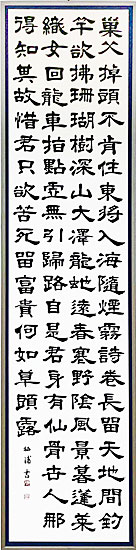 巢父掉頭不肯住東將入海隨煙霧詩卷長留天地間釣
竿欲拂珊瑚樹深山大澤龍虵遠春寒野陰風景暮蓬萊
織女回龍車指點虛無引歸路自是君身有仙骨世人那
得知其故惜君只欲苦死留富貴何如草頭露